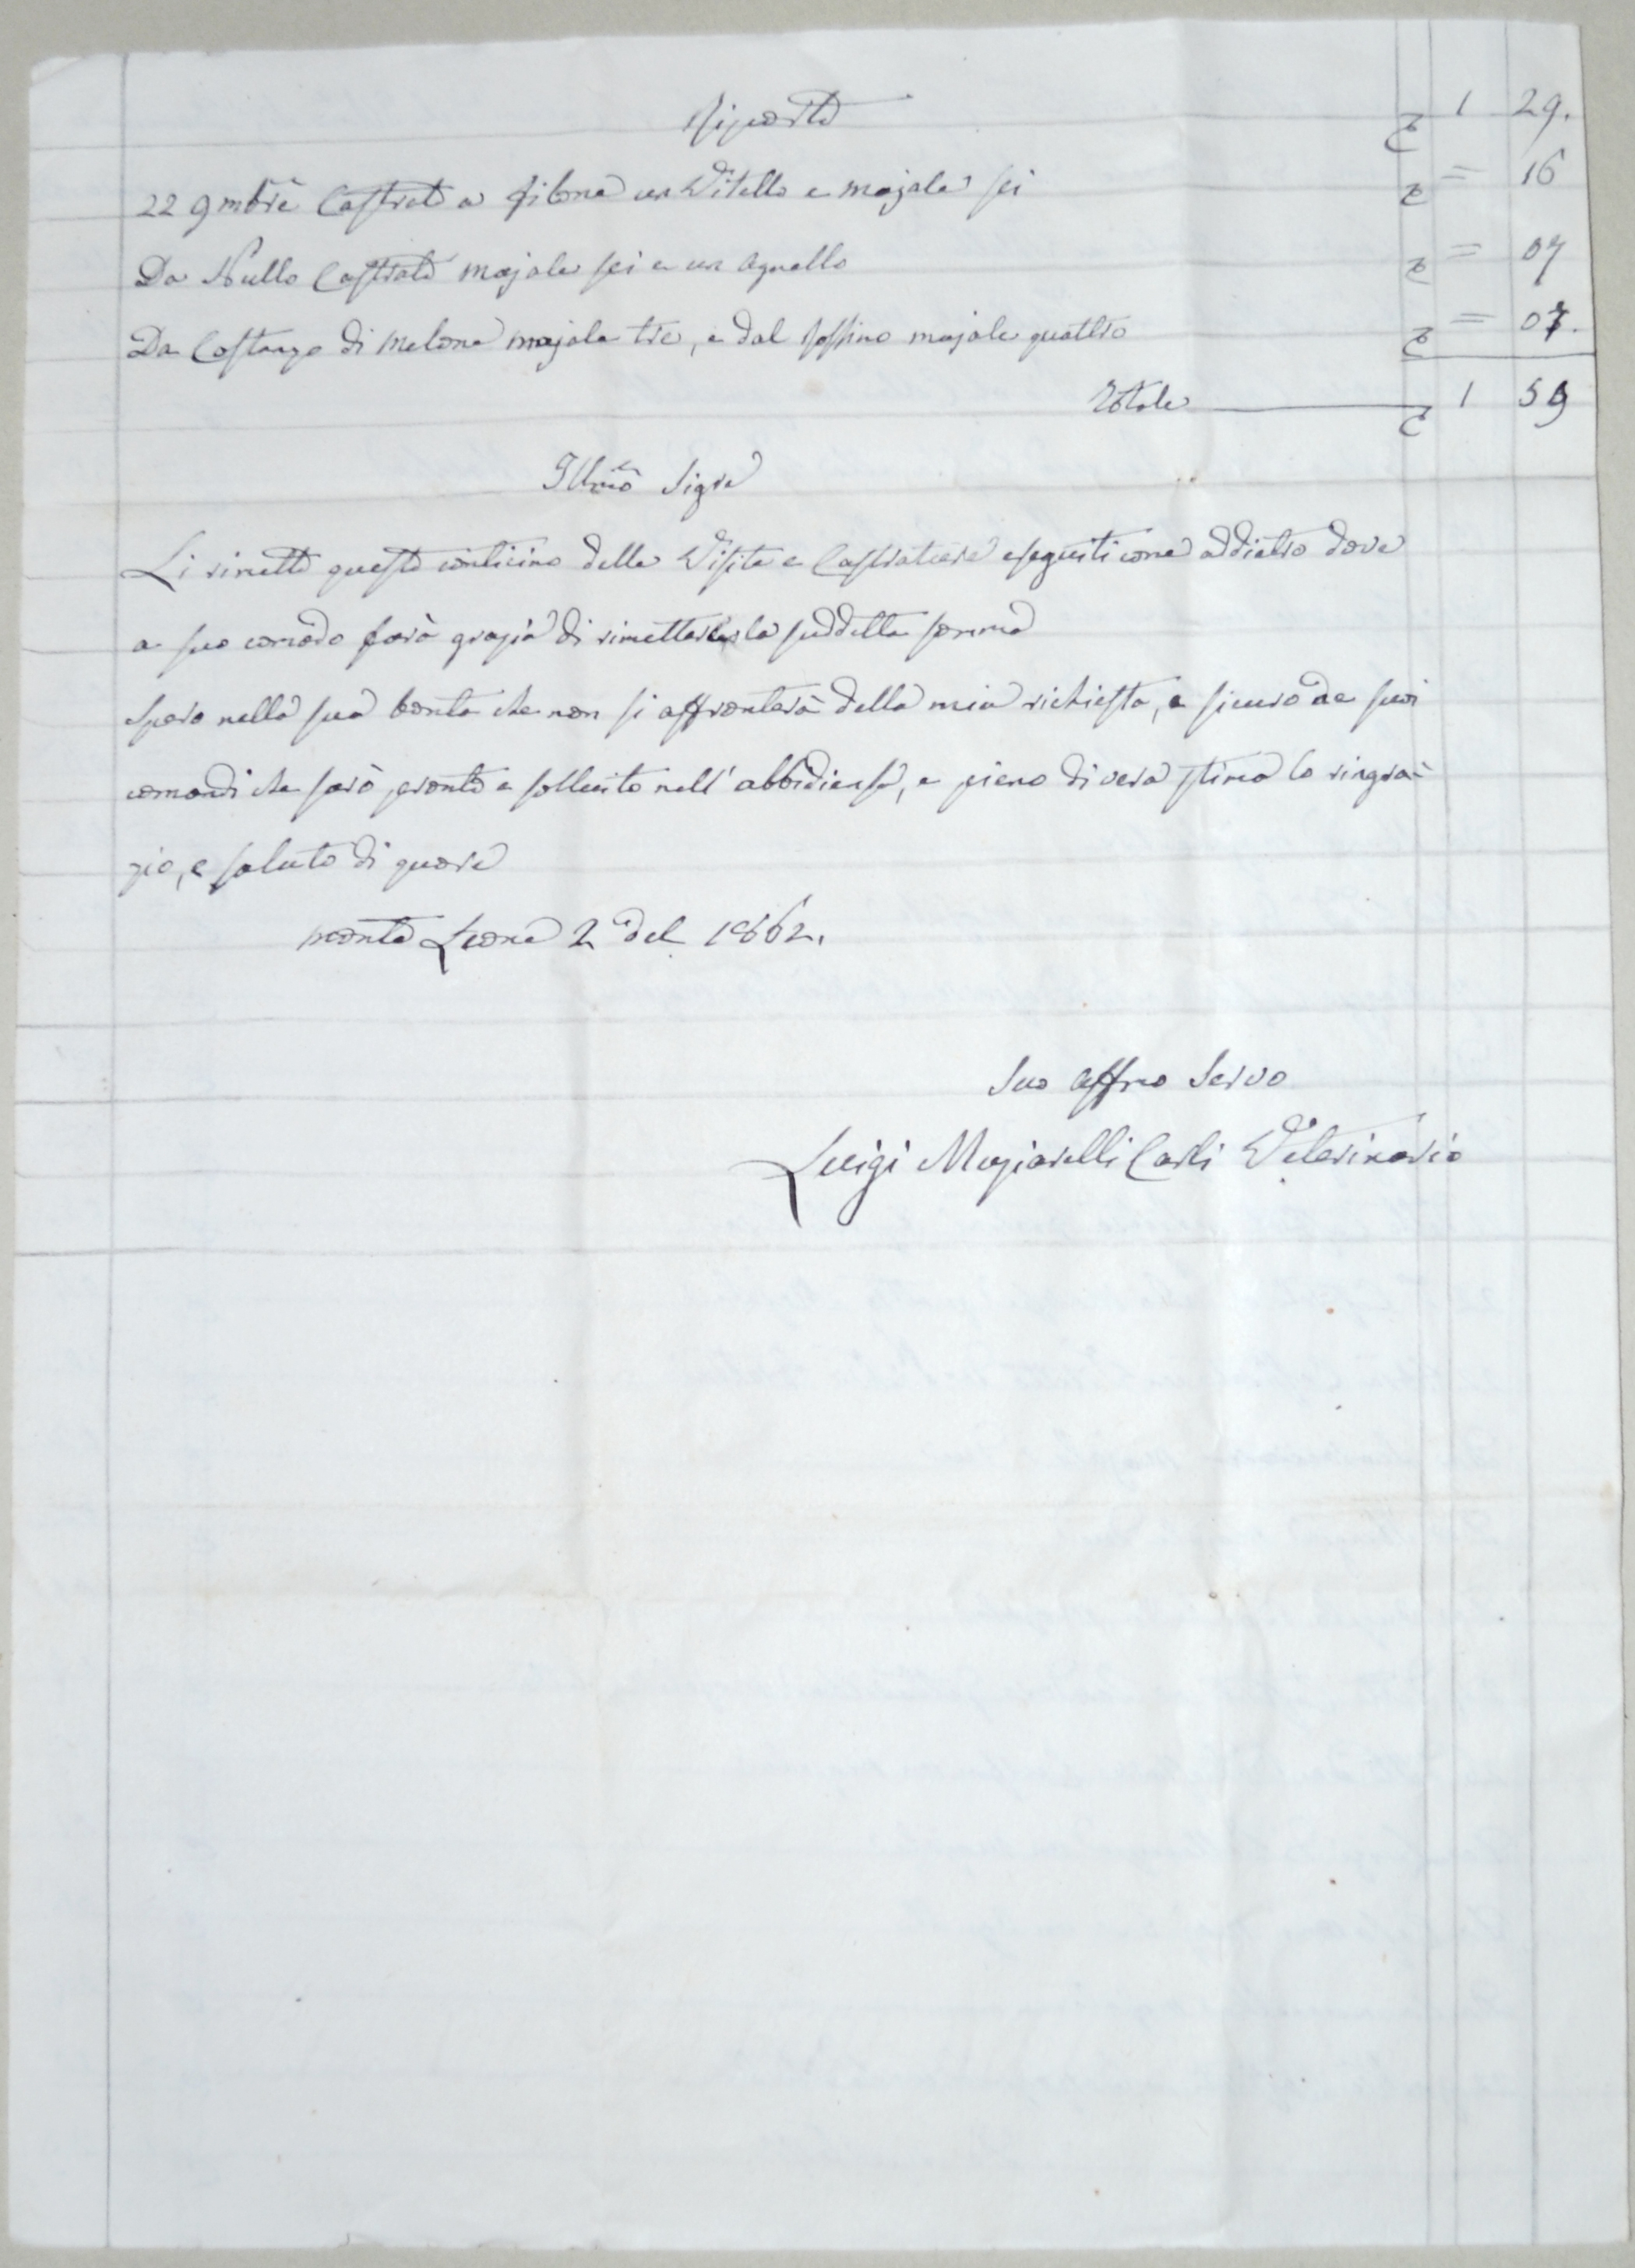 Riporto £ 1 29.
22 9mbrē Castrato a Filone un Vitello e majale sei £ = 16
Da Nullo Castrato majale sei e un Agnello £ = 07
Da Costanzo di Melone majale tre, e dal majale quattro £ = 07.
Totale £ 1 59
Illmō Sigre
Li rimetto questo conticino delle Visite e Castrature eseguiti come addietro dove
a suo comodo farà grazia di la suddetta somma
Spero nella sua bonta che non si affronterà della mia richiesta, e sicuro de suoi
comandi che sarò pronto e sollecito nell' abbidiensa, e pieno di vera stima lo ringra=
zio, e saluto di quore
Monte Leone 2 del 1862.
Suo Affmo Servo
Luigi Carli Veterinario